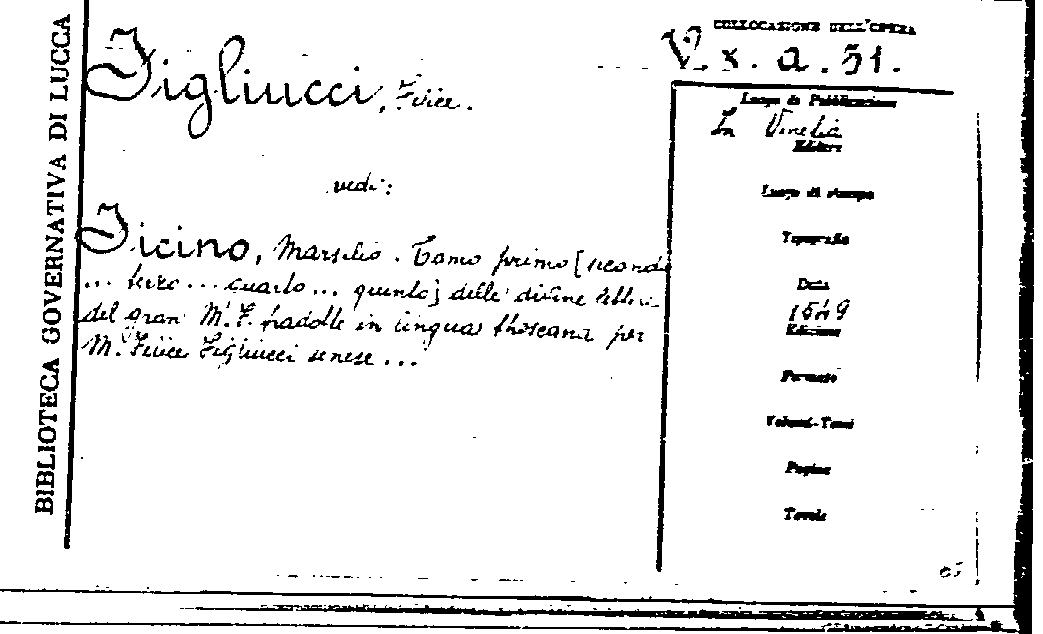 BIBLIOTECA GOVERNATIVA DI LUCCA
COLLOCAZIONE DELL'OPERA
V. x. a. 51.
Figliucci, Felice.
vedi:
Ficino, Marsilio. Tomo primo [secondo
... terzo ... cuarto ... quinto] delle divine lettere
del gran M. F. tradotte in lingua thoscana per
M. Felice Figliucci senese ...
Luogo di Pubblicazione
In Venetia
Editore
Luogo di stampa
Tipografia
Data
1549
Edizione
Formato
Volumi-Tomi
Pagine
Tavole